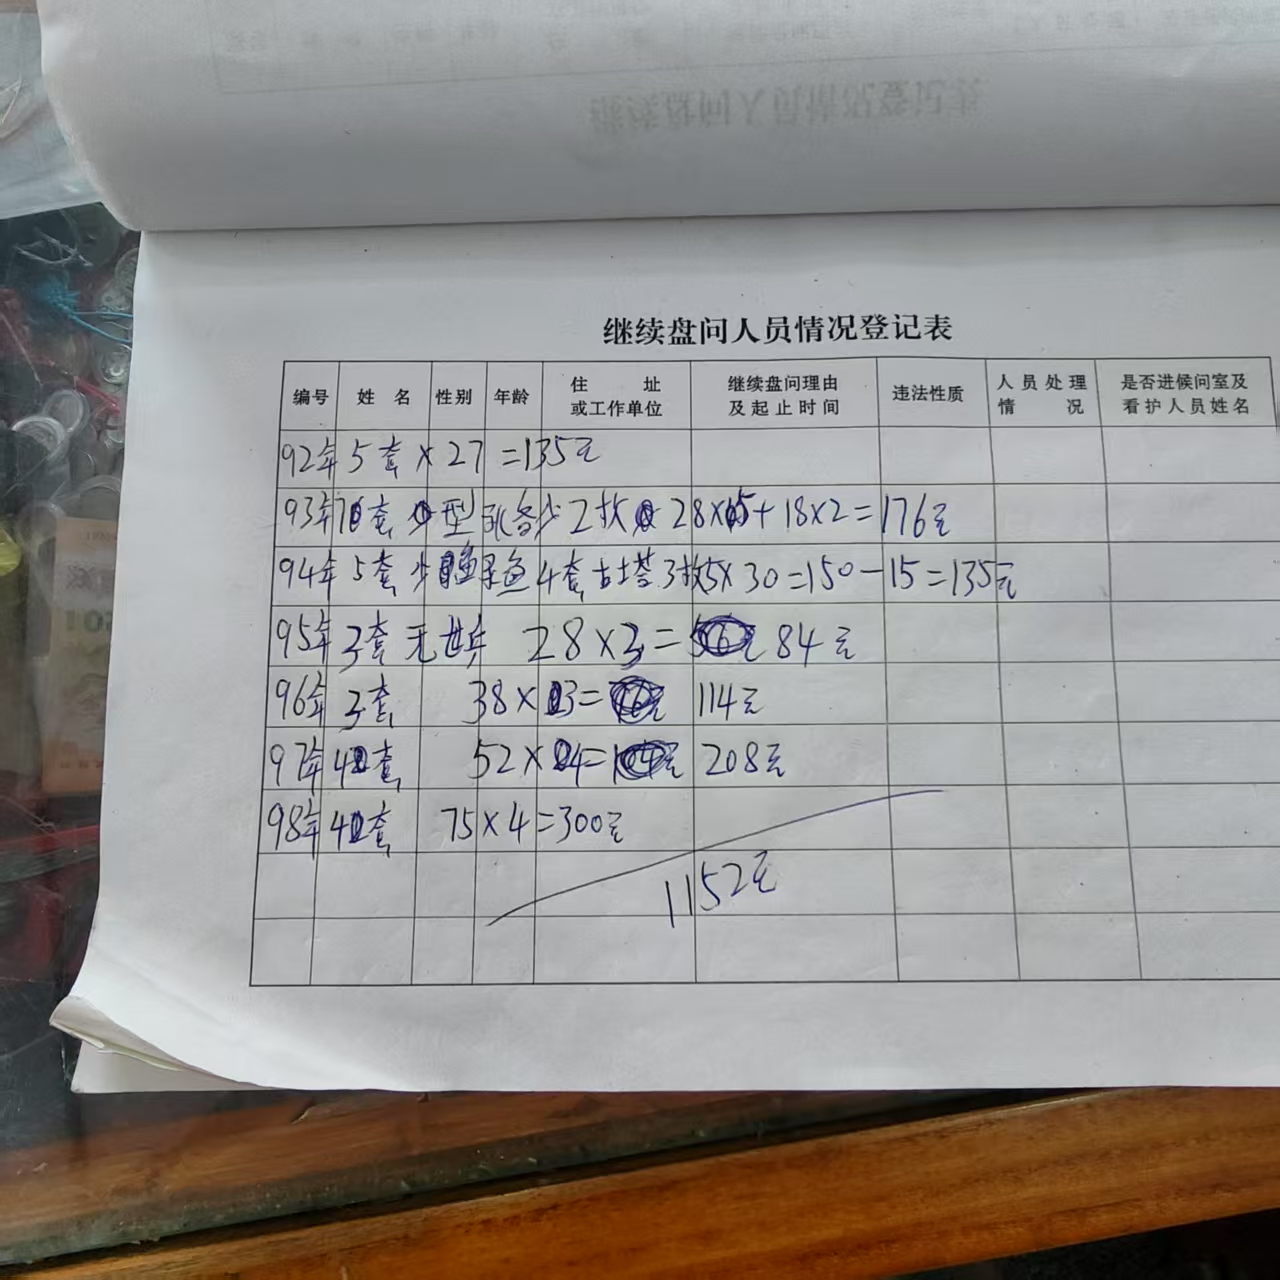 继续盘问人员情况登记表
编号 姓名 性别 年龄 住址或工作单位 继续盘问理由及起止时间 违法性质 人员处理情况 是否进候问室及看护人员姓名
92年 5套 × 27 =135元
93年 7套 少 2枚 28×5+18×2=176元
94年 5套 少 鱼 4套 古塔3枚 5×30=150-15=135元
95年 3套 无 28×3= 84元
96年 3套 38×3= 114元
97年 4套 52×4= 208元
98年 4套 75×4=300元
1152元